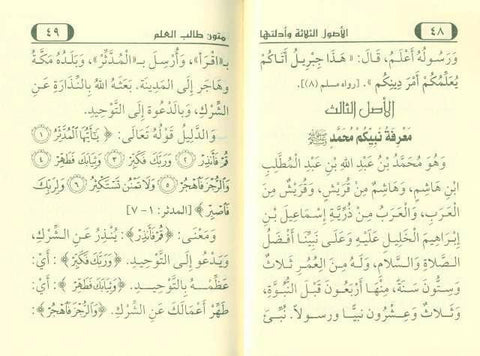 ٤٨
الأصول الثلاثة وأدلتها
وَرَسُولُهُ أَعْلَمُ، قَالَ: «هَذَا جِبْرِيلُ أَتَاكُمْ
يُعَلِّمُكُمْ أَمْرَ دِينِكُمْ». [رواه مسلم (٨)].
الأصل الثالث
مَعْرِفَةُ نَبِيِّكُمْ مُحَمَّدٍ ﷺ
وَهُوَ مُحَمَّدُ بْنُ عَبْدِ اللهِ بْنِ عَبْدِ الْمُطَّلِبِ
ابْنِ هَاشِمٍ، وَهَاشِمٌ مِنْ قُرَيْشٍ، وَقُرَيْشٌ مِنَ
الْعَرَبِ، وَالْعَرَبُ مِنْ ذُرِّيَّةِ إِسْمَاعِيلَ بْنِ
إِبْرَاهِيمَ الْخَلِيلِ عَلَيْهِ وَعَلَى نَبِيِّنَا أَفْضَلُ
الصَّلَاةِ وَالسَّلَامِ، وَلَهُ مِنَ الْعُمُرِ ثَلَاثٌ
وَسِتُّونَ سَنَةً، مِنْهَا أَرْبَعُونَ قَبْلَ النُّبُوَّةِ،
وَثَلَاثٌ وَعِشْرُونَ نَبِيًّا وَرَسُولًا. نُبِّئَ
متون طالب العلم
٤٩
بـ﴿اقْرَأْ﴾، وَأُرْسِلَ بـ﴿الْمُدَّثِّرْ﴾، وَبَلَدُهُ مَكَّةُ
وَهَاجَرَ إِلَى الْمَدِينَةِ. بَعَثَهُ اللهُ بِالنِّذَارَةِ عَنِ
الشِّرْكِ، وَبِالدَّعْوَةِ إِلَى التَّوْحِيدِ.
وَالدَّلِيلُ قَوْلُهُ تَعَالَى: ﴿يَا أَيُّهَا الْمُدَّثِّرُ ١
قُمْ فَأَنْذِرْ ٢ وَرَبَّكَ فَكَبِّرْ ٣ وَثِيَابَكَ فَطَهِّرْ ٤
وَالرُّجْزَ فَاهْجُرْ ٥ وَلَا تَمْنُنْ تَسْتَكْثِرُ ٦ وَلِرَبِّكَ
فَاصْبِرْ﴾ [المدثر: ١ - ٧]
وَمَعْنَى: ﴿قُمْ فَأَنْذِرْ﴾: يُنْذِرُ عَنِ الشِّرْكِ،
وَيَدْعُو إِلَى التَّوْحِيدِ. ﴿وَرَبَّكَ فَكَبِّرْ﴾: أَيْ:
عَظِّمْهُ بِالتَّوْحِيدِ. ﴿وَثِيَابَكَ فَطَهِّرْ﴾: أَيْ:
طَهِّرْ أَعْمَالَكَ عَنِ الشِّرْكِ. ﴿وَالرُّجْزَ فَاهْجُرْ﴾: